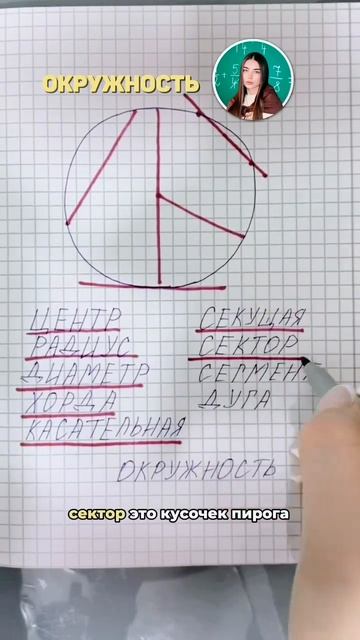 ОКРУЖНОСТЬ
ЦЕНТР
РАДИУС
ДИАМЕТР
ХОРДА
КАСАТЕЛЬНАЯ
СЕКУЩАЯ
СЕКТОР
СЕГМЕН
ДУГА
ОКРУЖНОСТЬ
сектор это кусочек пирога